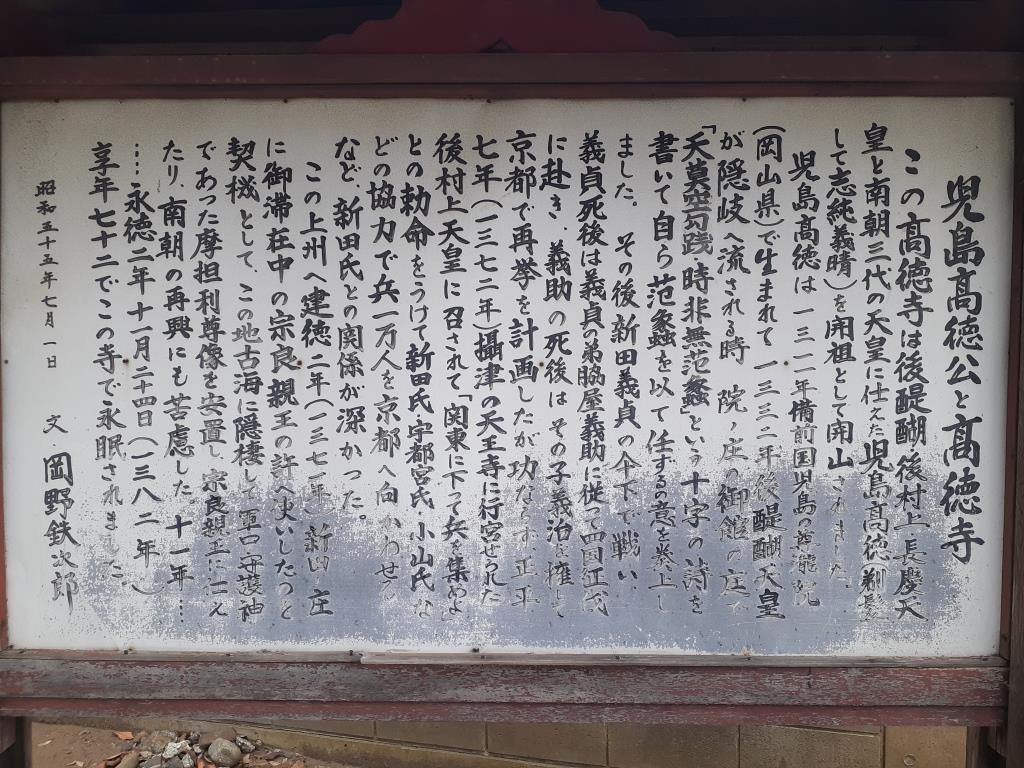 児島高徳公と高徳寺
この高徳寺は後醍醐、後村上、長慶天
皇と南朝三代の天皇に仕えた児島高徳(剃髪
して志純義晴)を開祖として開山されました。
児島高徳は一三一一年備前国児島の尊瀧院
(岡山県)で生まれて一三三二年後醍醐天皇
が隠岐へ流される時院ノ庄の御館の庭で
「天莫空勾践・時非無范蠡」という十字の詩を
書いて自ら范蠡を以て任ずるの意を奏上し
ました。その後新田義貞の傘下で戦い
義貞死後は義貞の弟脇屋義助に従って四国
に赴き、義助の死後はその子義治を擁して
京都で再挙を計画したが功ならず、正平
七年(一三七二年)攝津の天王寺に行宮せられた
後村上天皇に召されて「関東に下って兵を集めよ」
との勅命をうけて新田氏宇都宮氏小山氏な
どの協力で兵一万人を京都へ向かわせる
など、新田氏との関係が深かった。
この上州へ建徳二年(一三七一年)新田ノ庄
に御滞在中の宗良親王の許へ使いしたのを
契機として、この地古海に隠棲して軍口守護神
であった摩担利尊像を安置し宗良親王に仕え
たり、南朝の再興にも苦慮した十一年……
……永徳二年十一月二十四日(一三八二年)
享年七十二でこの寺で永眠されました。
昭和五十五年七月一日
文、岡野鉄次郎